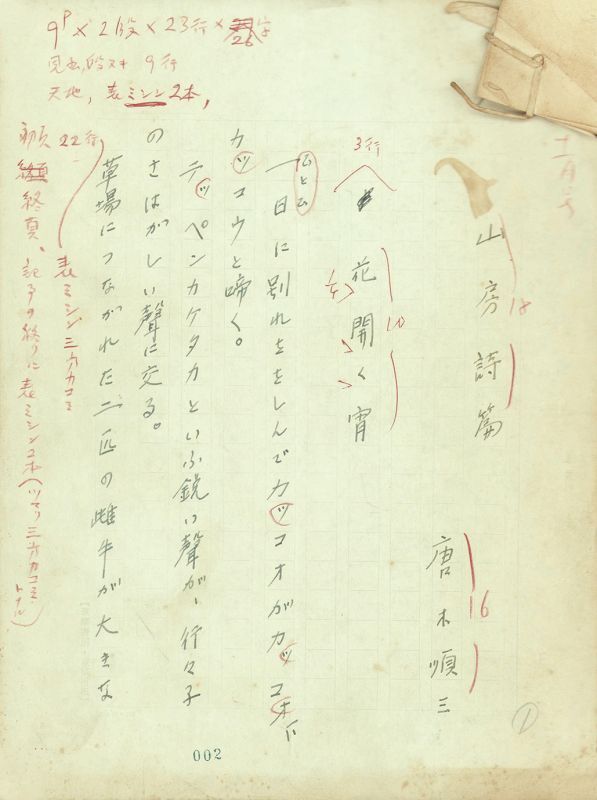 十一月号
9P×2段×23行×26字
見出し段ヌキ 9行
天地、表ミシン2本、
山房詩篇
18
唐木順三
16
3行
花開く宵
10
一日に別れををしんでカッコオがカッコオ
カッコウと啼く。
テッペンカケタカといふ鋭い聲が、行々子
のさはがしい聲に交る。
草場につながれた二匹の雌牛が大きな
22行 表ミシン三方カコミ
終頁、記事の終りに表ミシン2本(ツマリ三方カコミ、トナル)
1
002